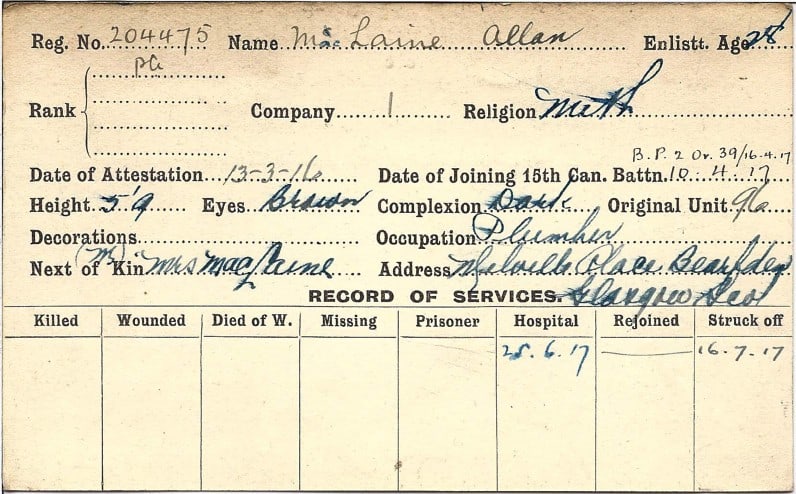 Reg. No. 204475 Name Mac Laine Allan Enlistt. Age 28
pte
Rank Company 1 Religion Meth
B.P. 2 Or. 39/16.4.17
Date of Attestation 13-3-16 Date of Joining 15th Can. Battn. 10.4.17
Height 5'9 Eyes Brown Complexion Dark Original Unit 96
Decorations Occupation Plumber
Next of (m) Kin Mrs MacLaine Address Melville Place Bearsden
RECORD OF SERVICES. Glasgow Scot
Killed Wounded Died of W. Missing Prisoner Hospital Rejoined Struck off
25.6.17 16.7.17